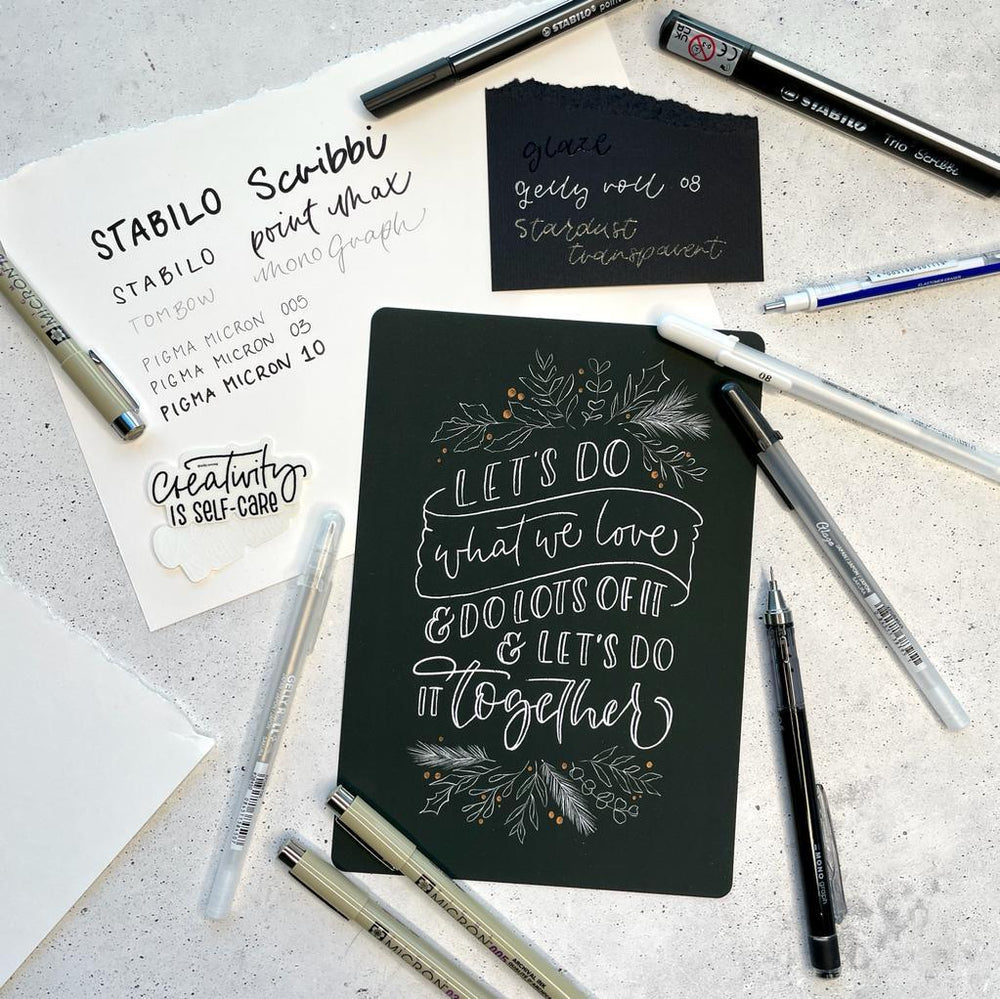 STABILO Scribbi
STABILO point Max
TOMBOW mono graph
PIGMA MICRON 005
PIGMA MICRON 03
PIGMA MICRON 10
glaze
gelly roll 08
Stardust
transparent
creativity
IS SELF-CARE
LET'S DO
what we love
& DO LOTS OF IT
& LET'S DO
IT together
STABILO point
STABILO Trio Scribbi
CE
MICRON
08
Glaze
MONO graph
MICRON 005
ARCHIVAL INK
MICRON
ELASTOMER ERASER